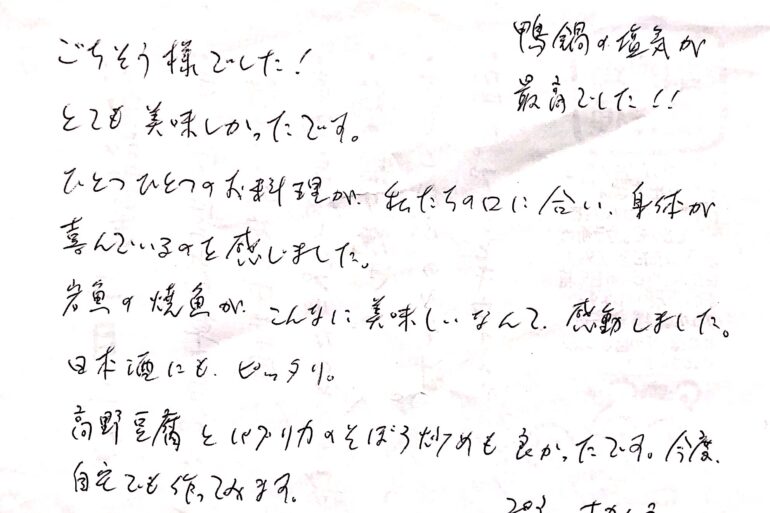 ごちそう様でした!
とても美味しかったです。
ひとつひとつのお料理が、私たちの口に合い、身体が
喜んでいるのを感じました。
岩魚の焼魚が、こんなに美味しいなんて、感動しました。
日本酒にも、ピッタリ。
高野豆腐とパプリカのそぼろ炒めも良かったです。今度、
自宅でも作ってみます。
鴨鍋の塩気が
最高でした!!